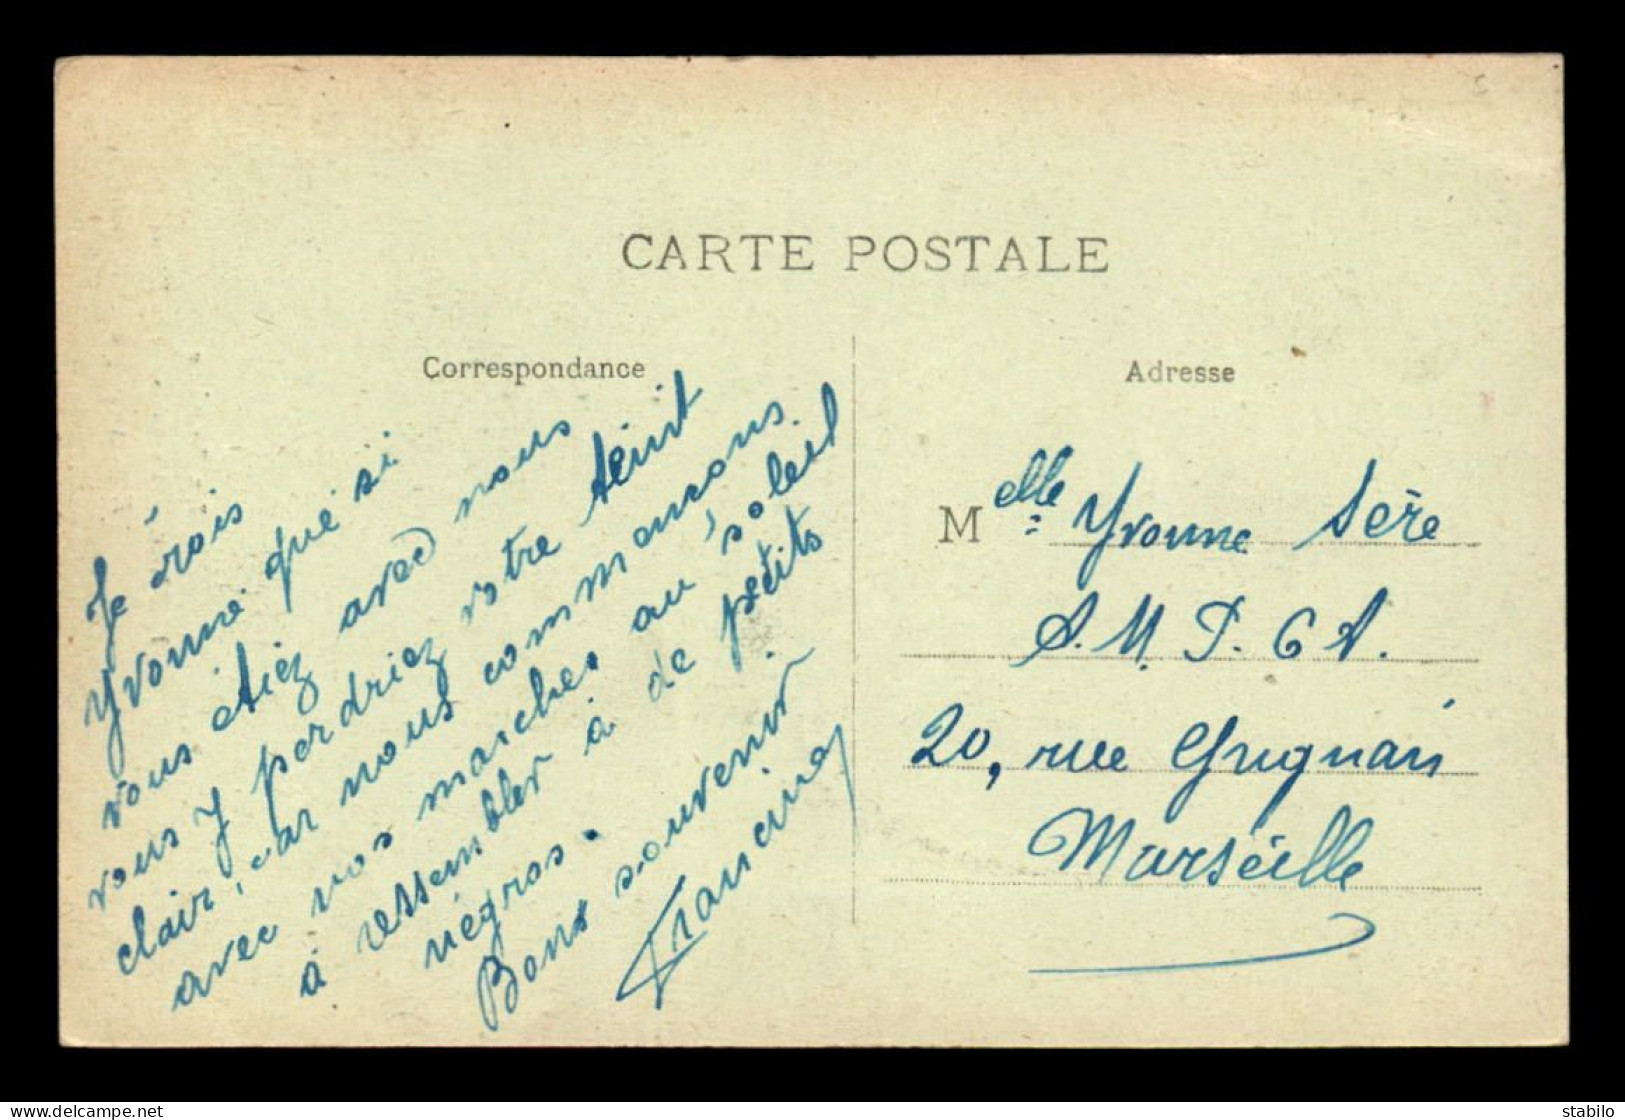 CARTE POSTALE
Correspondance
Je crois
Yvonne que si
vous étiez avec nous
vous y perdriez votre teint
clair, car nous commençons
avec nos marches au soleil
à ressembler à de petits
négros.
Bons souvenir
Francine
Adresse
Melle Yvonne Sère
20, rue Grignan
Marseille
stabilo